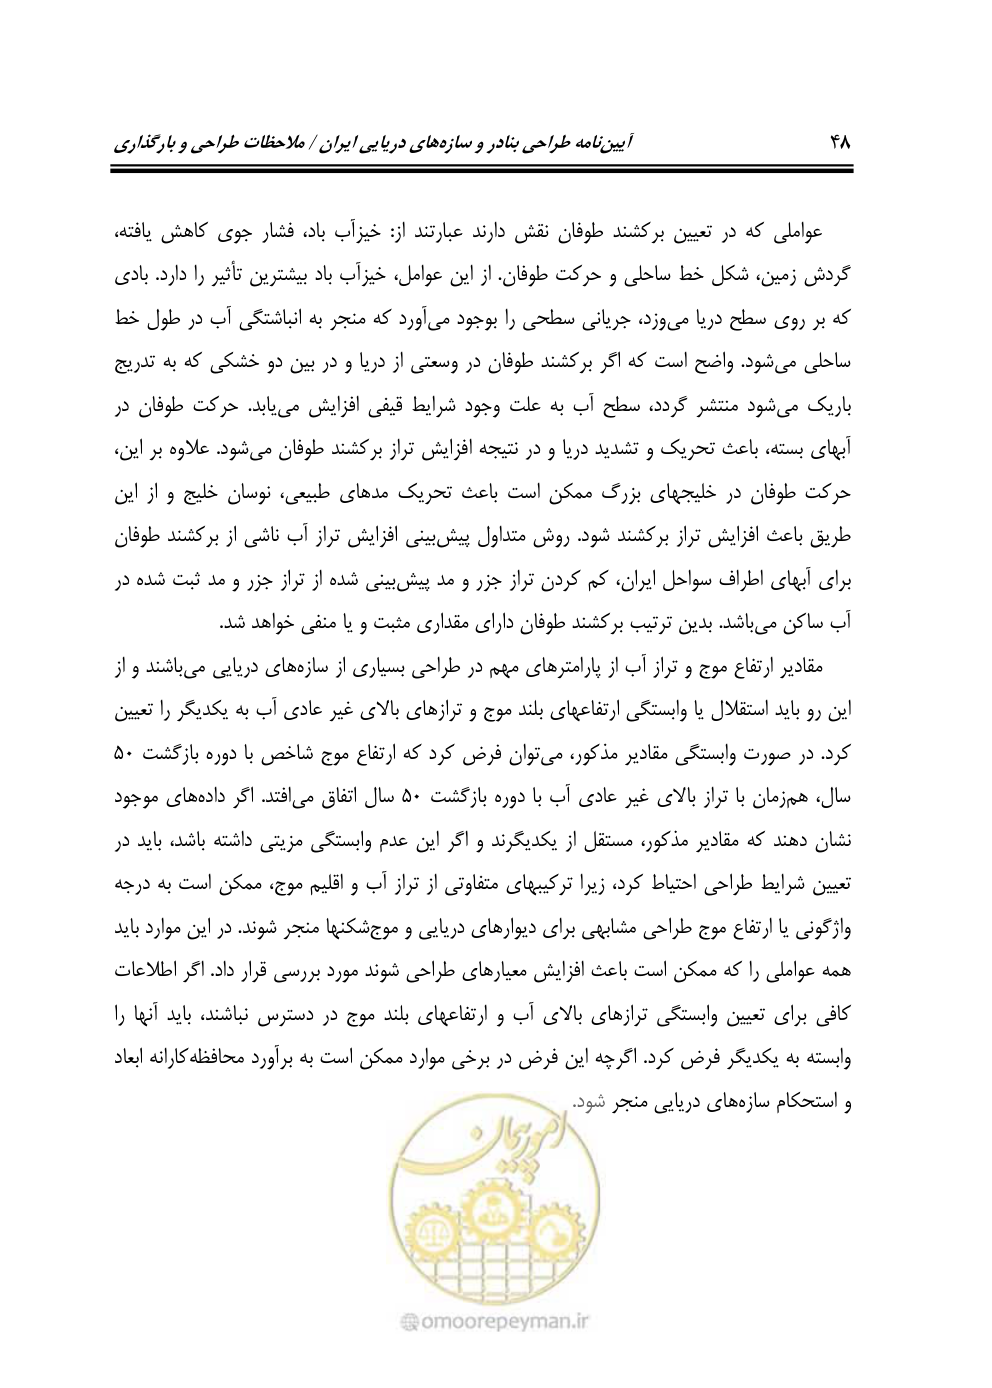 ۴۸ آیین‌نامه طراحی بنادر و سازه‌های دریایی ایران / ملاحظات طراحی و بارگذاری
عواملی که در تعیین برکشند طوفان نقش دارند عبارتند از: خیزآب باد، فشار جوی کاهش یافته،
گردش زمین، شکل خط ساحلی و حرکت طوفان. از این عوامل، خیزآب باد بیشترین تأثیر را دارد. بادی
که بر روی سطح دریا می‌وزد، جریانی سطحی را بوجود می‌آورد که منجر به انباشتگی آب در طول خط
ساحلی می‌شود. واضح است که اگر برکشند طوفان در وسعتی از دریا و در بین دو خشکی که به تدریج
باریک می‌شود منتشر گردد، سطح آب به علت وجود شرایط قیفی افزایش می‌یابد. حرکت طوفان در
آبهای بسته، باعث تحریک و تشدید دریا و در نتیجه افزایش تراز برکشند طوفان می‌شود. علاوه بر این،
حرکت طوفان در خلیجهای بزرگ ممکن است باعث تحریک مدهای طبیعی، نوسان خلیج و از این
طریق باعث افزایش تراز برکشند شود. روش متداول پیش‌بینی افزایش تراز آب ناشی از برکشند طوفان
برای آبهای اطراف سواحل ایران، کم کردن تراز جزر و مد پیش‌بینی شده از تراز جزر و مد ثبت شده در
آب ساکن می‌باشد. بدین ترتیب برکشند طوفان دارای مقداری مثبت و یا منفی خواهد شد.
مقادیر ارتفاع موج و تراز آب از پارامترهای مهم در طراحی بسیاری از سازه‌های دریایی می‌باشند و از
این رو باید استقلال یا وابستگی ارتفاعهای بلند موج و ترازهای بالای غیر عادی آب به یکدیگر را تعیین
کرد. در صورت وابستگی مقادیر مذکور، می‌توان فرض کرد که ارتفاع موج شاخص با دوره بازگشت ۵۰
سال، هم‌زمان با تراز بالای غیر عادی آب با دوره بازگشت ۵۰ سال اتفاق می‌افتد. اگر داده‌های موجود
نشان دهند که مقادیر مذکور، مستقل از یکدیگرند و اگر این عدم وابستگی مزیتی داشته باشد، باید در
تعیین شرایط طراحی احتیاط کرد، زیرا ترکیبهای متفاوتی از تراز آب و اقلیم موج، ممکن است به درجه
واژگونی یا ارتفاع موج طراحی مشابهی برای دیوارهای دریایی و موج‌شکنها منجر شوند. در این موارد باید
همه عواملی را که ممکن است باعث افزایش معیارهای طراحی شوند مورد بررسی قرار داد. اگر اطلاعات
کافی برای تعیین وابستگی ترازهای بالای آب و ارتفاعهای بلند موج در دسترس نباشند، باید آنها را
وابسته به یکدیگر فرض کرد. اگرچه این فرض در برخی موارد ممکن است به برآورد محافظه‌کارانه ابعاد
و استحکام سازه‌های دریایی منجر شود.
امور پیمان
@omoorepeyman.ir